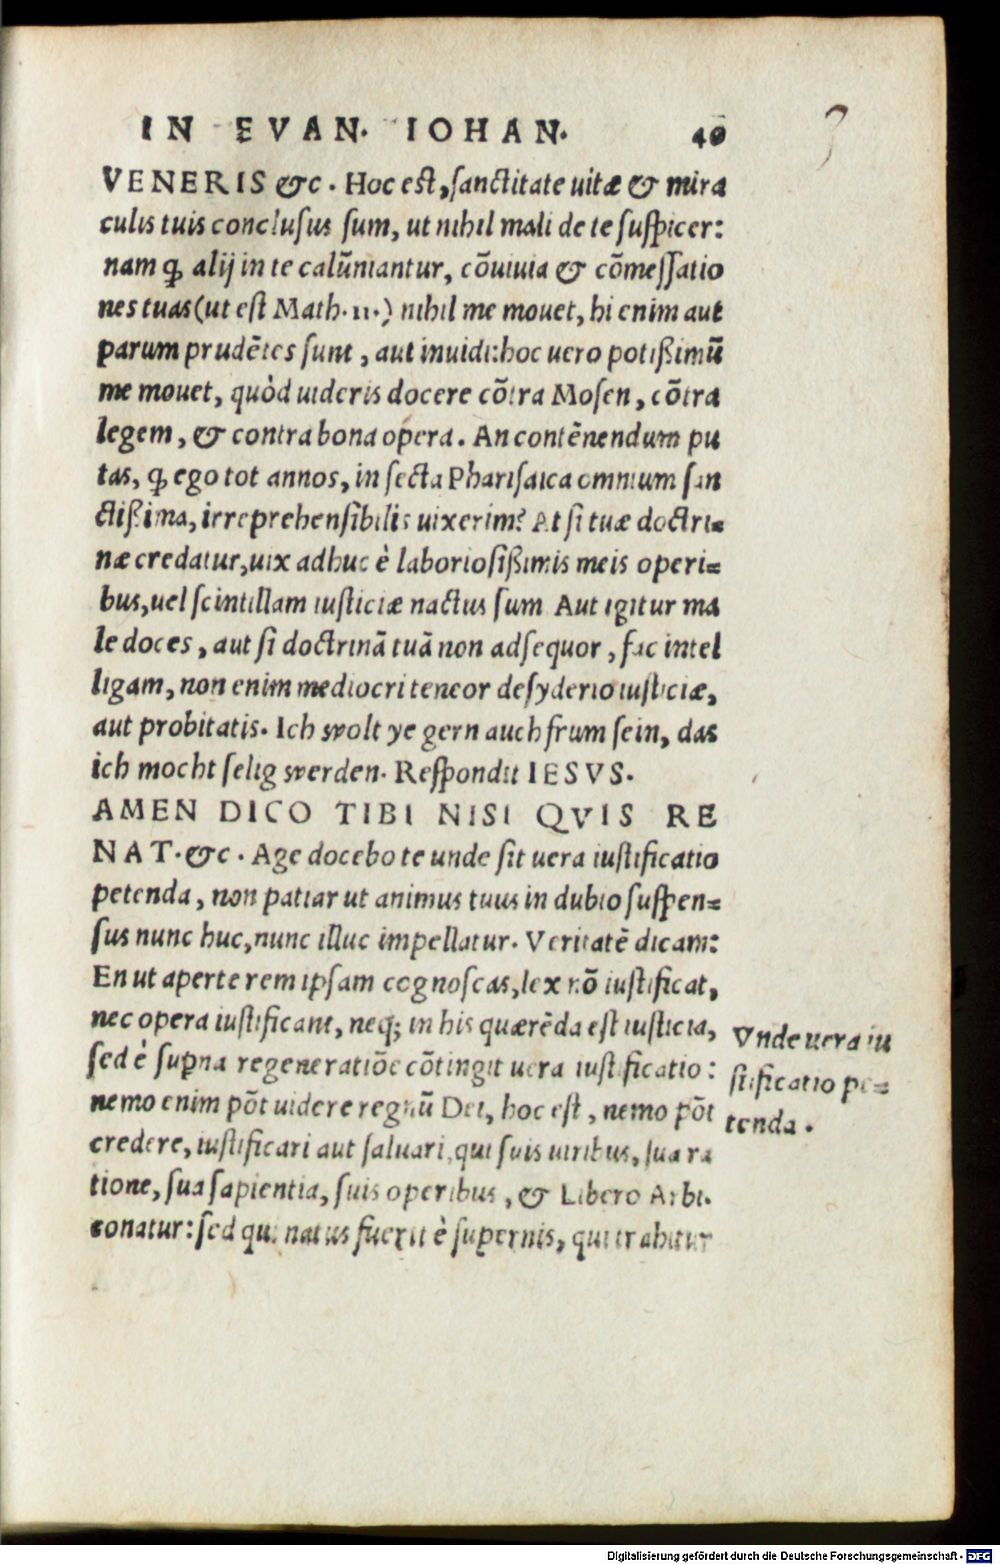 IN EVAN. IOHAN. 40
VENERIS &c. Hoc est, sanctitate uitæ & mira
culis tuis conclusus sum, ut nihil mali de te suspicer:
nam ꝙ alij in te calũniantur, cõuiuia & cõmessatio
nes tuas (ut est Math. 11.) nihil me mouet, hi enim aut
parum prudẽtes sunt, aut inuidi: hoc uero potißimũ
me mouet, quòd uideris docere cõtra Mosen, cõtra
legem, & contra bona opera. An contẽnendum pu
tas, ꝙ ego tot annos, in secta Pharisaica omnium san
ctißima, irreprehensibilis uixerim? At si tuæ doctri=
næ credatur, uix adhuc è laboriosißimis meis operi=
bus, uel scintillam iusticiæ nactus sum Aut igitur ma
le doces, aut si doctrinã tuã non adsequor, fac intel
ligam, non enim mediocri teneor desyderio iusticiæ,
aut probitatis. Ich wolt ye gern auch frum sein, das
ich mocht selig werden. Respondit IESVS.
AMEN DICO TIBI NISI QVIS RE
NAT. &c. Age docebo te unde sit uera iustificatio
petenda, non patiar ut animus tuus in dubio suspen=
sus nunc huc, nunc illuc impellatur. Veritatẽ dicam:
En ut aperte rem ipsam cognoscas, lex nõ iustificat,
nec opera iustificant, neq; in his quærẽda est iusticia,
sed è supna regeneratiõe cõtingit uera iustificatio:
nemo enim põt uidere regnũ Dei, hoc est, nemo põt
credere, iustificari aut saluari, qui suis uiribus, sua ra
tione, sua sapientia, suis operibus, & Libero Arbi.
conatur: sed qui natus fuerit è supernis, qui trahitur
Vnde uera iu
stificatio pe=
tenda.
Digitalisierung gefördert durch die Deutsche Forschungsgemeinschaft - DFG